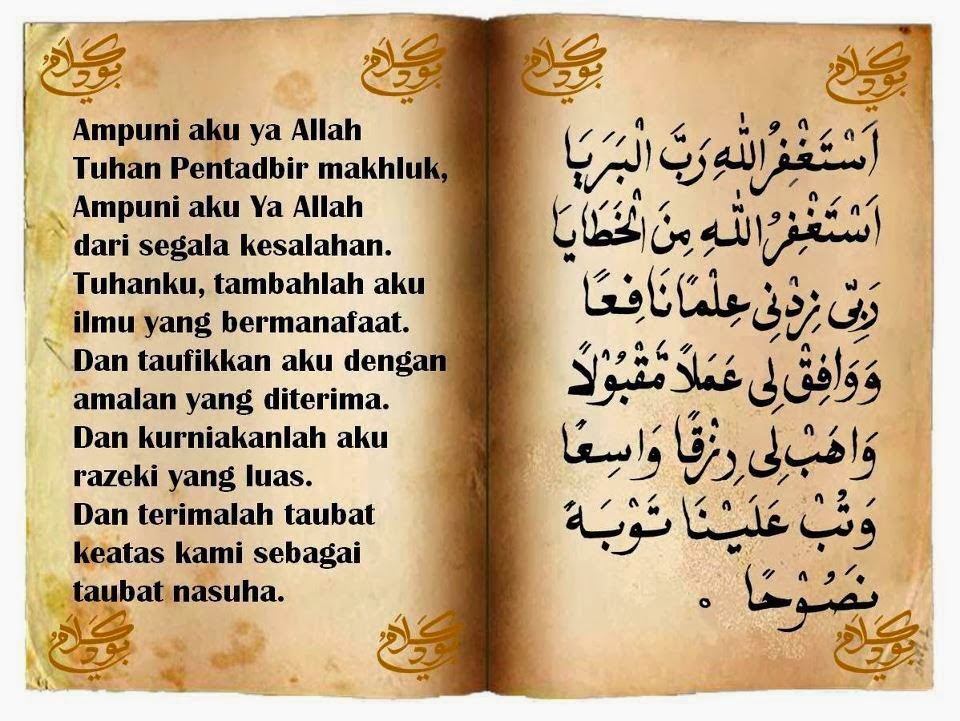 Ampuni aku ya Allah
Tuhan Pentadbir makhluk,
Ampuni aku Ya Allah
dari segala kesalahan.
Tuhanku, tambahlah aku
ilmu yang bermanafaat.
Dan taufikkan aku dengan
amalan yang diterima.
Dan kurniakanlah aku
razeki yang luas.
Dan terimalah taubat
keatas kami sebagai
taubat nasuha.
اَسْتَغْفِرُ اللّٰهِ رَبَّ الْبَرَيَا
اَسْتَغْفِرُ اللّٰهِ مِنَ الْخَطَايَا
رَبِّى زِدْنِى عِلْمًا نَافِعًا
وَوَافِقْ لِى عَمَلًا مَّقْبُوْلًا
وَاهَبْ لِى رِزْقًا وَاسِعًا
وَتُبْ عَلَيْنَا تَوْبَةً
نَصُوْحًا .